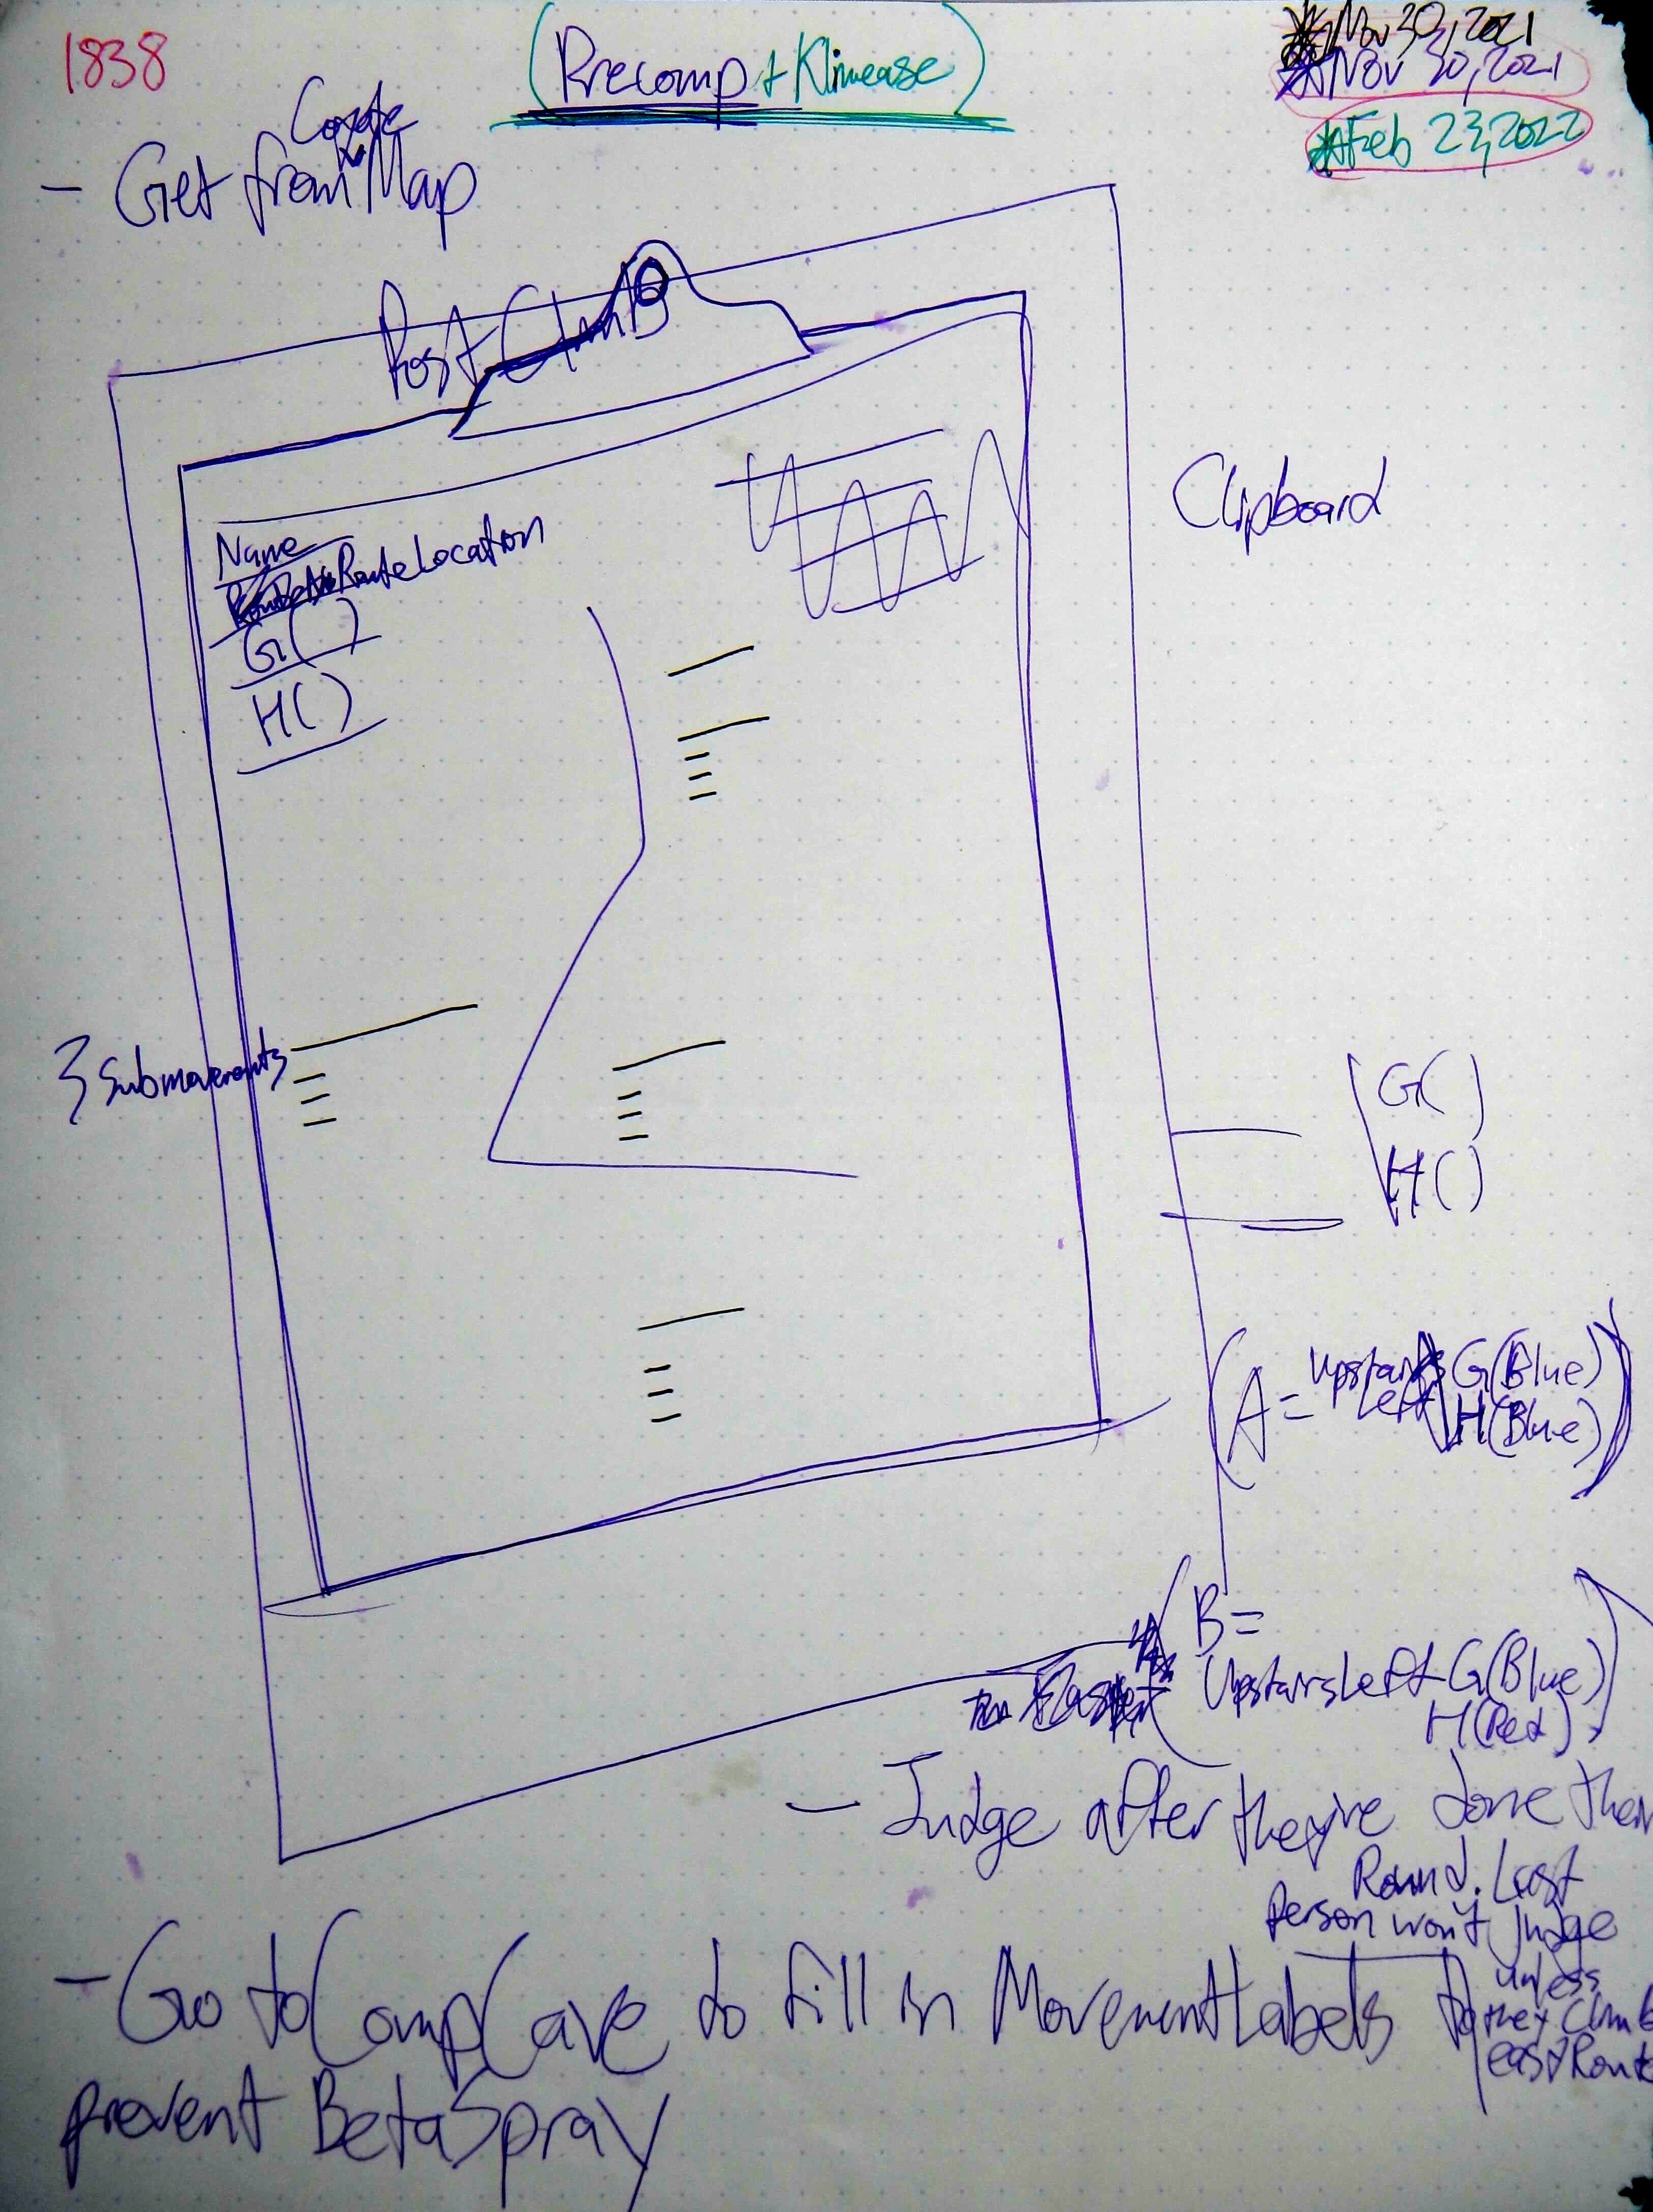 1838
(Precomp + Klimease)
Nov 30, 2021
Nov 30, 2021
Feb 23, 2022
- Get from Map
Post Climb
Clipboard
Name
Route Location
G()
H()
3 Submovements
G()
H()
A = Upstairs Left G(Blue)
H(Blue)
B =
Upstairs Left G(Blue)
H(Red)
- Judge after they're done their
Round. Last
Person won't judge
unless
they Climb
easy Route
- Go to Comp Cave to fill in Movement Labels to
prevent Beta Spray